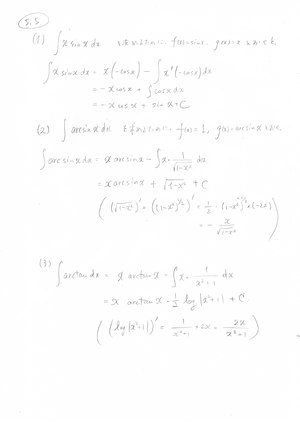 5.5
(1) ∫x sin x dx f(x)=sin x, g(x)=x
∫x sin x dx = x(-cos x) - ∫x'(-cos x)dx
= -x cos x + ∫cos x dx
= -x cos x + sin x + C
(2) ∫arcsin x dx f(x)=1, g(x)=arcsin x
∫arcsin x dx = x arcsin x - ∫x・1/√(1-x²) dx
= x arcsin x + √(1-x²) + C
( (√(1-x²))' = ((1-x²)^(1/2))' = 1/2・(1-x²)^(-1/2)×(-2x)
= -x/√(1-x²) )
(3)
∫arctan dx = x arctan x - ∫x・1/(x²+1) dx
= x arctan x - 1/2 log|x²+1| + C
( (log|x²+1|)' = 1/(x²+1)×2x = 2x/(x²+1) )